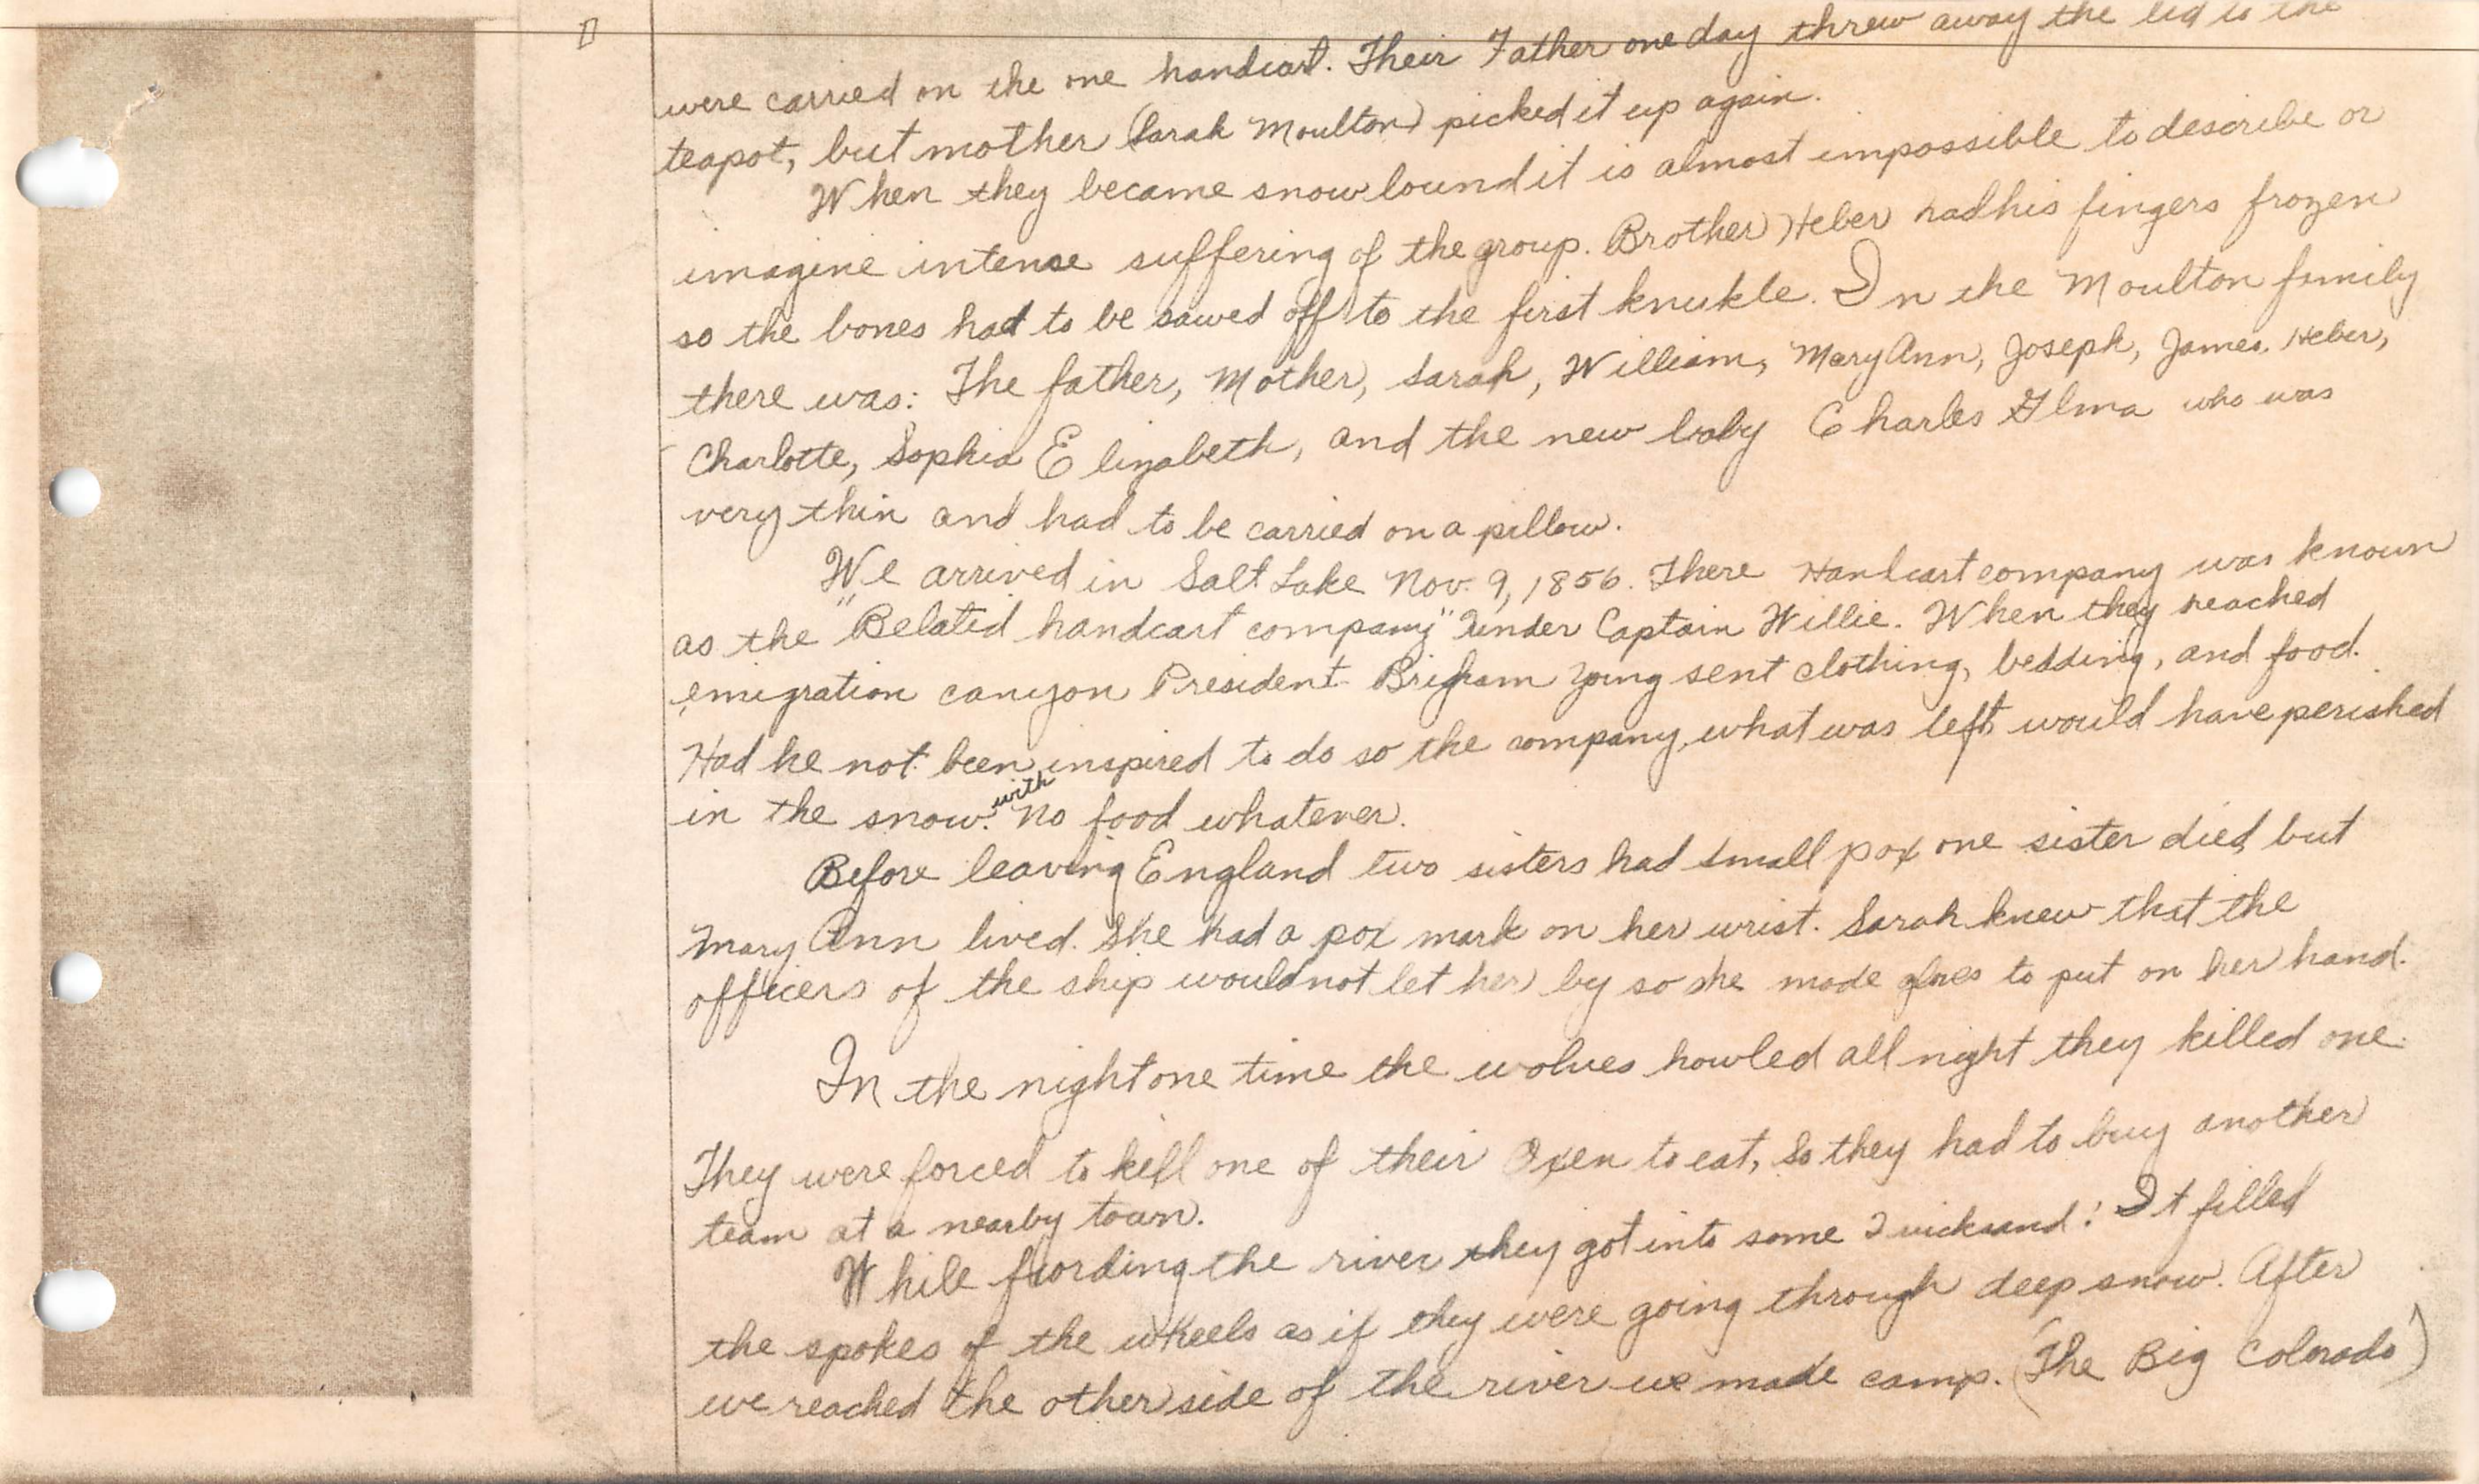 were carried on the one handcart. Their Father one day threw away the lid to the
teapot, but mother (Sarah Moulton) picked it up again.
When they became snowbound it is almost impossible to describe or
imagine intense suffering of the group. Brother Heber had his fingers frozen
so the bones had to be sawed off to the first knukle. In the Moulton family
there was: The father, Mother, Sarah, William, Mary Ann, Joseph, James, Heber,
Charlotte, Sophia Elizabeth, and the new baby Charles Alma who was
very thin and had to be carried on a pillow.
We arrived in Salt Lake Nov. 9, 1856. There Handcart company was known
as the "Belated handcart company" under Captain Willie. When they reached
emigration canyon President Brigham Yong sent clothing, bedding, and food.
Had he not been inspired to do so the company, what was left would have perished
in the snow. with No food whatever.
Before leaving England two sisters had small pox one sister died, but
Mary Ann lived. She had a pox mark on her wrist. Sarah knew that the
officers of the ship would not let her by so she made gloves to put on her hand.
In the night one time the wolves howled all night they killed one.
They were forced to kill one of their Oxen to eat, so they had to buy another
team at a nearby town.
While fording the river they got into some Quicksand! It filled
the spokes of the wheels as if they were going through deep snow. After
we reached the other side of the river we made camp. (The Big Colorado)